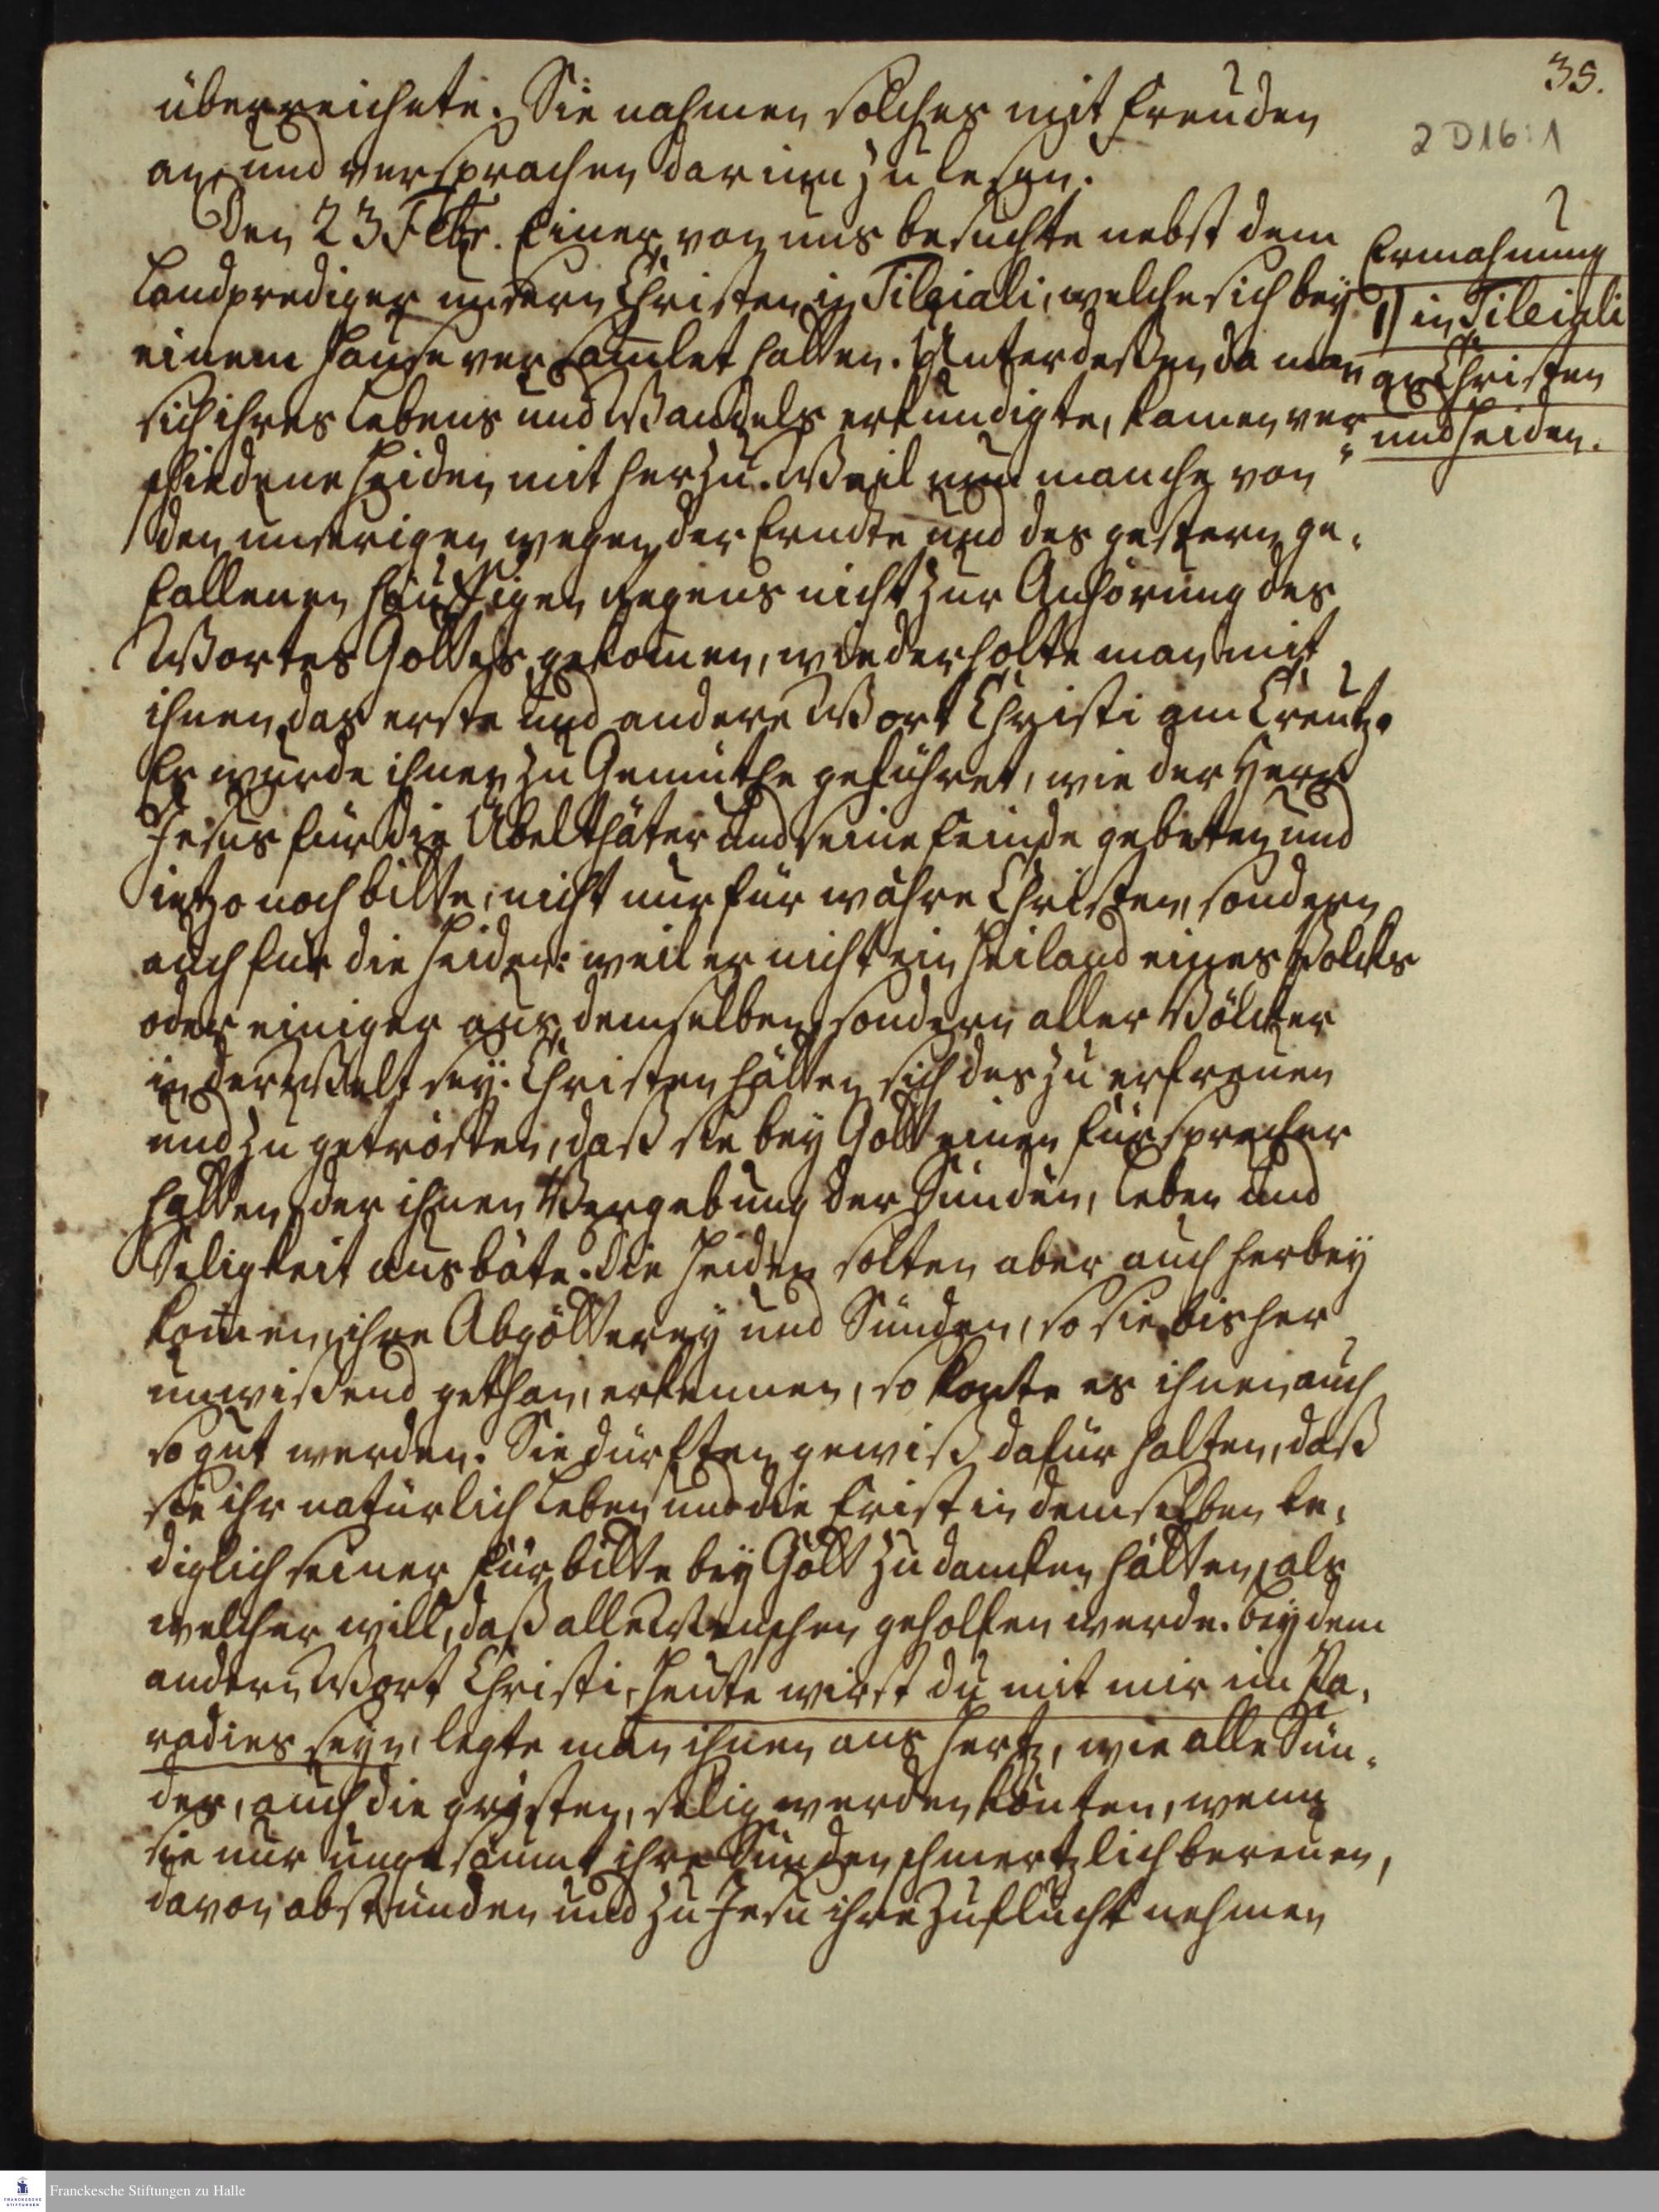 35.
2 D16:1
überreichete. Sie nahmen solches mit Freuden
an, und versprachen darinn zu lesen.
Den 23 Febr. Einer von uns besuchte nebst dem
Landprediger unsern Christen in Tileiali, welche sich bey
einem Hause versam̄let hatten. Unterdeßen da man
sich ihres Lebens und Wandels erkundigte, kamen ver-
schiedene Heiden mit herzu. Weil nun manche von
den unsrigen wegen der Erndte und des gestern ge-
fallenen häuffigen Regens nicht zur Anhörung des
Wortes Gottes gekom̄en, wiederholte man mit
ihnen das erste und andere Wort Christi am Creutz.
Es wurde ihnen zu Gemüthe geführet, wie der Herr
Jesus für die Übelthäter und seine Feinde gebeten und
ietzo noch bitte, nicht nur für wahre Christen, sondern
auch für die Heiden: weil er nicht ein Heiland eines Volcks
oder einiger aus demselben, sondern aller Völcker
in der Welt sey. Christen hätten sich des zu erfreuen
und zu getrösten, daß sie bey Gott einen Fürsprecher
hätten, der ihnen Vergebung der Sünden, Leben und
Seligkeit ausbäte. Die Heiden solten aber auch herbey
kom̄en, ihre Abgötterey und Sünden, so sie bisher
unwißend gethan, erkennen, so konte es ihnen auch
so gut werden. Sie dürften gewiß dafür halten, daß
sie ihr natürlich Leben und die Frist in demselben le-
diglich seiner Fürbitte bey Gott zu dancken hätten, als
welcher will, daß alle Menschen geholfen werde. Bey dem
andern Wort Christi, Heute wirst du mit mir im Pa-
radies seyn, legte man ihnen ans Hertz, wie alle Sün-
der, auch die grösten, selig werden könten, wenn
sie nur ungesäumt ihre Sünden schmertzlich bereuen,
davon abstünden und zu Jesu ihre Zuflucht nehmen
Ermahnung
1) in Tileiali
an Christen
und Heiden.
Franckesche Stiftungen zu Halle